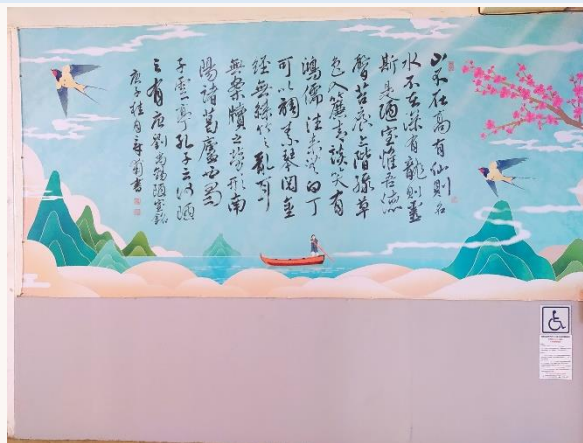 山不在高有仙則名
水不在深有龍則靈
斯是陋室惟吾德
馨苔痕上階綠草
色入簾青談笑有
鴻儒往來無白丁
可以調素琴閱金
經無絲竹之亂耳
無案牘之勞形南
陽諸葛廬西蜀
子雲亭孔子云何陋
之有唐劉禹錫陋室銘
庚子桂月書